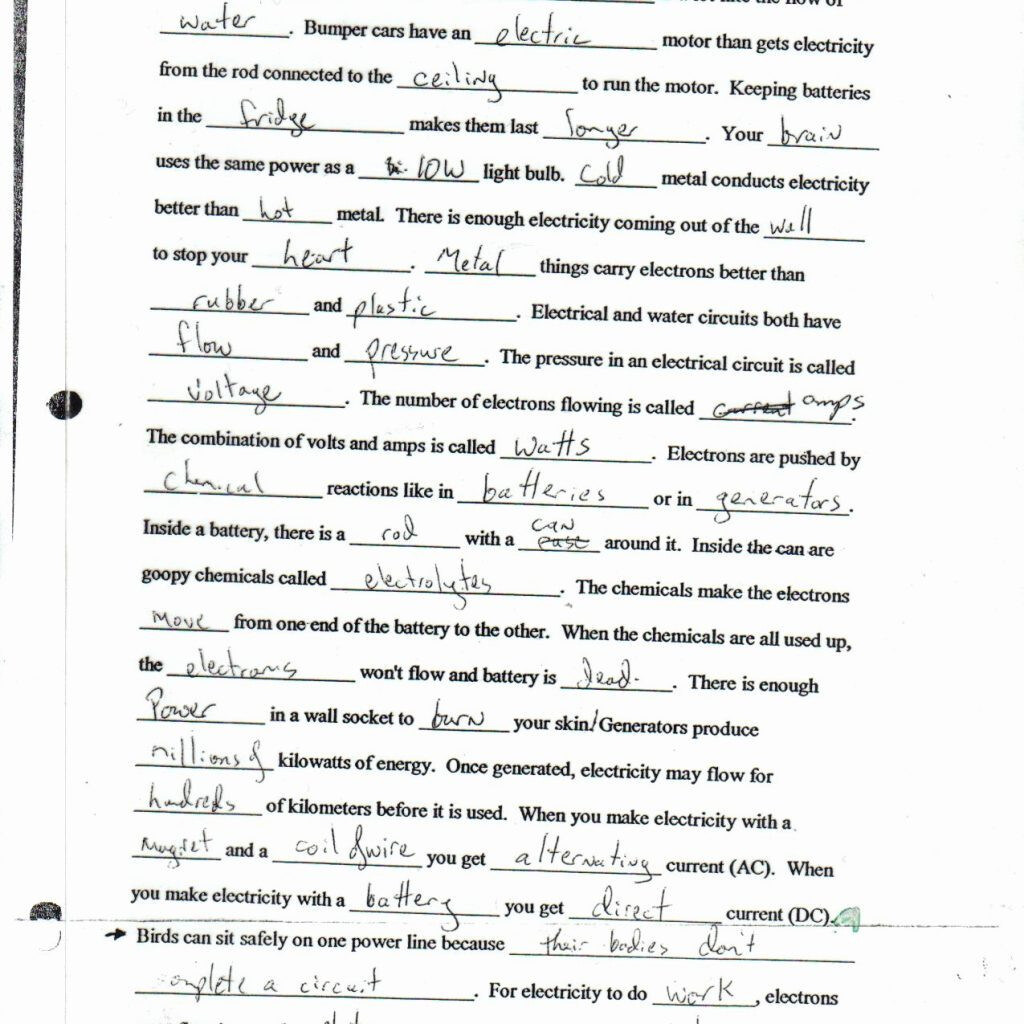 water. Bumper cars have an electric motor than gets electricity
from the rod connected to the ceiling to run the motor. Keeping batteries
in the fridge makes them last longer. Your brain
uses the same power as a 10W light bulb. Cold metal conducts electricity
better than hot metal. There is enough electricity coming out of the wall
to stop your heart. Metal things carry electrons better than
rubber and plastic. Electrical and water circuits both have
flow and pressure. The pressure in an electrical circuit is called
voltage. The number of electrons flowing is called current amps.
The combination of volts and amps is called watts. Electrons are pushed by
chemical reactions like in batteries or in generators.
Inside a battery, there is a rod with a can around it. Inside the can are
goopy chemicals called electrolytes. The chemicals make the electrons
move from one end of the battery to the other. When the chemicals are all used up,
the electrons won't flow and battery is dead. There is enough
Power in a wall socket to burn your skin/Generators produce
millions of kilowatts of energy. Once generated, electricity may flow for
hundreds of kilometers before it is used. When you make electricity with a
magnet and a coil of wire you get alternating current (AC). When
you make electricity with a battery you get direct current (DC).
Birds can sit safely on one power line because their bodies don't
complete a circuit. For electricity to do work, electrons